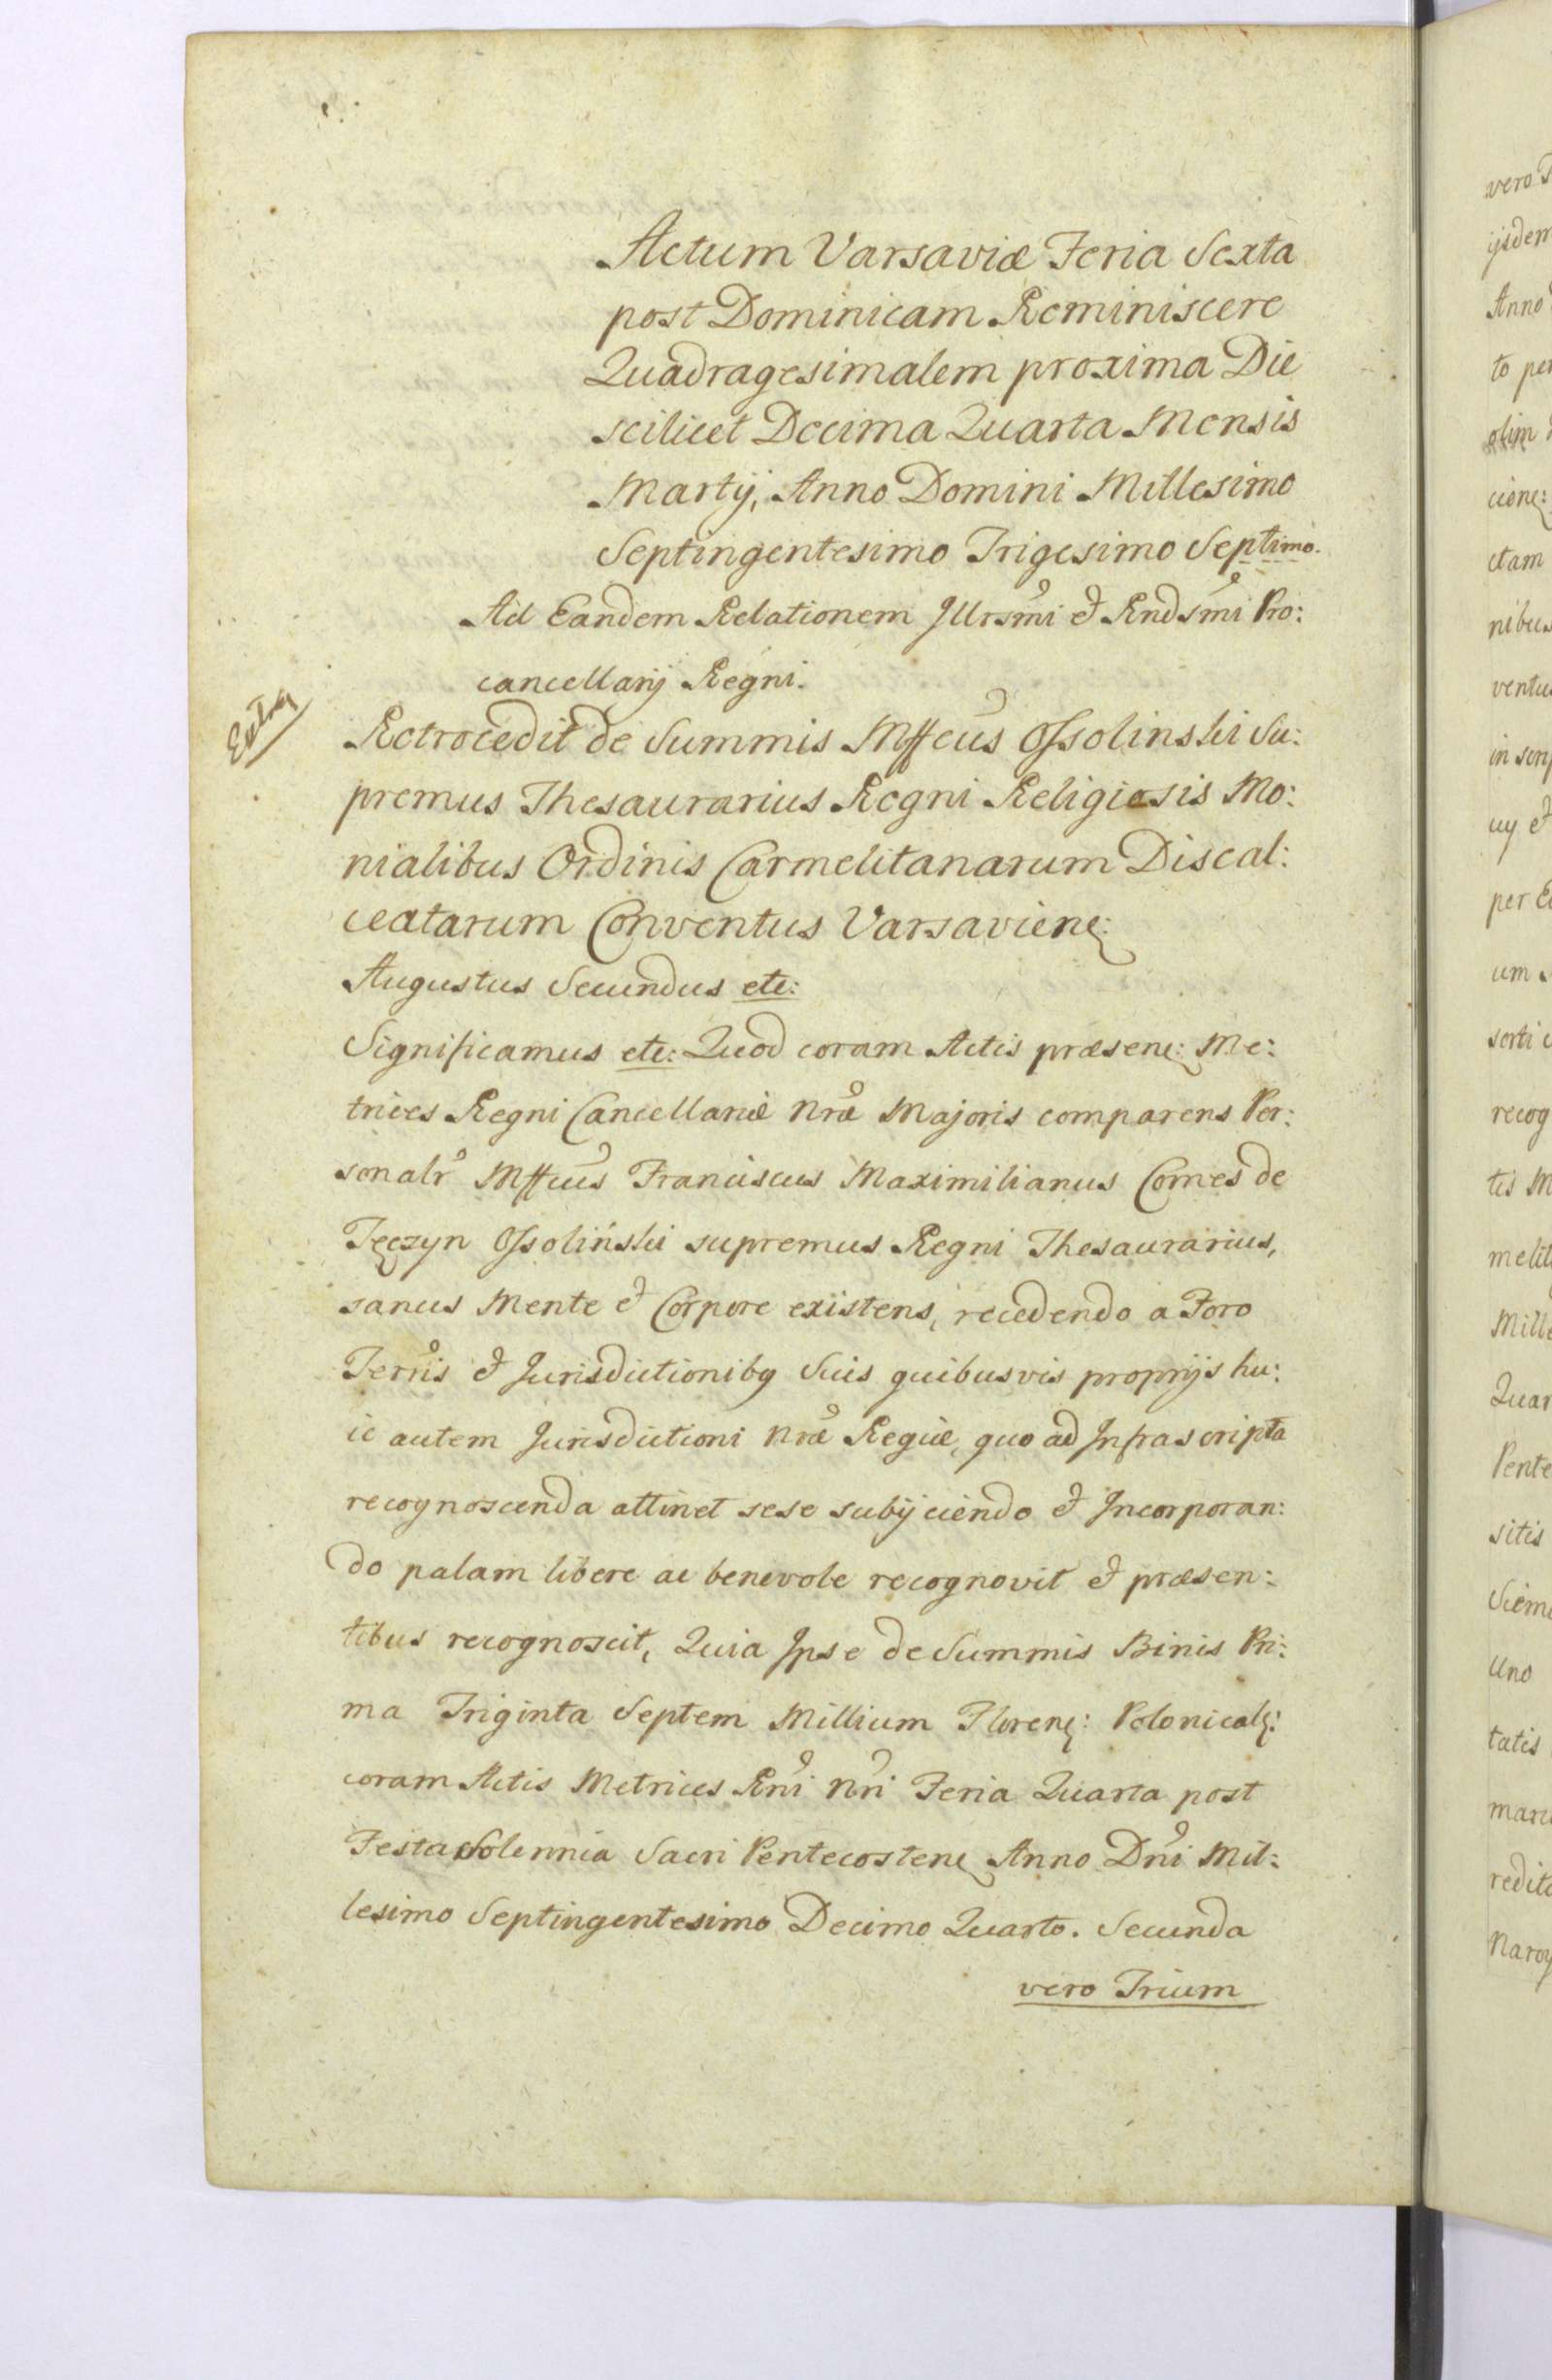 Actum Varsaviæ Feria Sexta
post Dominicam Reminiscere
Quadragesimalem proxima Die
scilicet Decima Quarta Mensis
Martij, Anno Domini Millesimo
Septingentesimo Trigesimo Septimo.
Ad Eandem Relationem Illrsmi et Rndsmi Pro:
cancellarij Regni.
Extra
Retrocedit de Summis Mffcus Ossolinski Su:
premus Thesaurarius Regni Religiosis Mo:
nialibus Ordinis Carmelitanarum Discal:
ceatarum Conventus Varsavienę:
Augustus Secundus etc:
Significamus etc: Quod coram Actis præsenę: Me:
trices Regni Cancellariæ Nræ Majoris comparens Per:
sonalr Mffcus Franciscus Maximilianus Comes de
Tęczyn Ossoliński supremus Regni Thesaurarius,
sanus Mente et Corpore existens, recedendo a Foro
Terris et Jurisdictionibq Suis quibusvis proprijs hu:
ic autem Jurisdictioni Nræ Regiæ, quo ad Infrascripta
recognoscenda attinet sese subijciendo et Incorporan:
do palam libere ac benevole recognovit et præsen:
tibus recognoscit, Quia Ipse de Summis Binis Pri:
ma Triginta Septem Millium Florenę: Polonicalę:
coram Actis Metrices Rni Nri Feria Quarta post
Festa Solennia Sacri Pentecostenę Anno Dni Mil:
lesimo Septingentesimo Decimo Quarto. Secunda
vero Trium